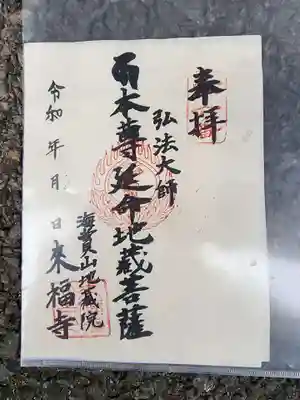 奉拝
弘法大師
両本尊延命地蔵菩薩
海賞山地蔵院
来福寺
令和 年 月 日